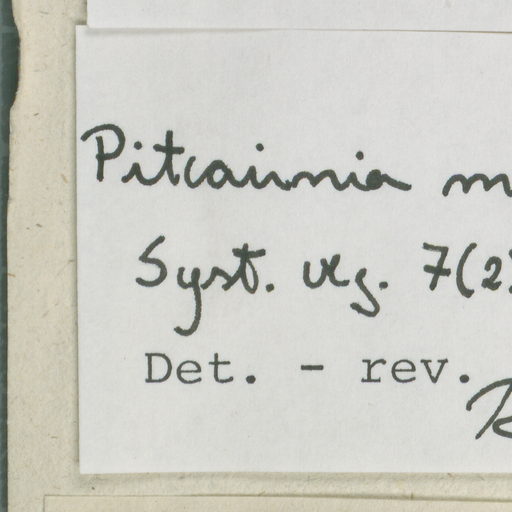 Pitcairnia m
Syst. veg. 7(2)
Det. - rev.